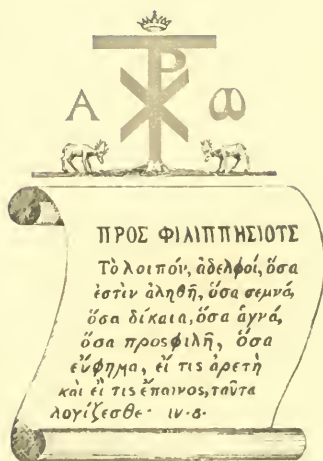 Ρ
Α ω
ΠΡΟΣ ΦΙΛΙΠΠΗΣΙΟΤΣ
Τὸ λοιπόν, ἀδελφοί, ὅσα
ἐστὶν ἀληθῆ, ὅσα σεμνά,
ὅσα δίκαια, ὅσα ἁγνά,
ὅσα προσφιλῆ, ὅσα
εὔφημα, εἴ τις ἀρετὴ
καὶ εἴ τις ἔπαινος, ταῦτα
λογίζεσθε· IV·8·